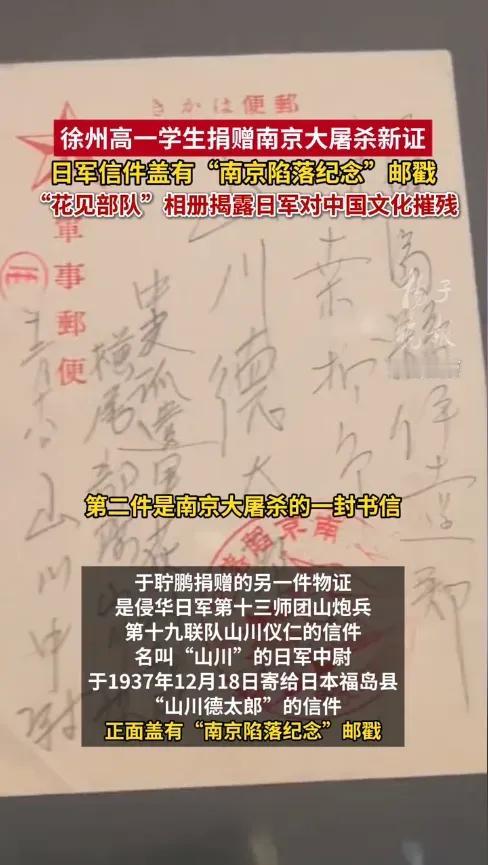 きかは便郵
徐州高一学生捐赠南京大屠杀新证
日军信件盖有“南京陷落纪念”邮戳
“花见部队”相册揭露日军对中国文化摧残
軍事郵便
山川德太
横尾部隊
山川中尉
第二件是南京大屠杀的一封书信
于聍鹏捐赠的另一件物证
是侵华日军第十三师团山炮兵
第十九联队山川仪仁的信件
名叫“山川”的日军中尉
于1937年12月18日寄给日本福岛县
“山川德太郎”的信件
正面盖有“南京陷落纪念”邮戳